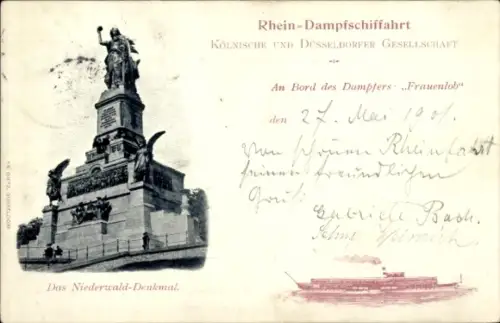 Rhein-Dampfschiffahrt
Kölnische und Düsseldorfer Gesellschaft
An Bord des Dampfers "Frauenlob"
den 27. Mai 1901.
Von schönen Rheinfahrt
freundlichen
Gruß
Gabriele Bach.
Das Niederwald-Denkmal.